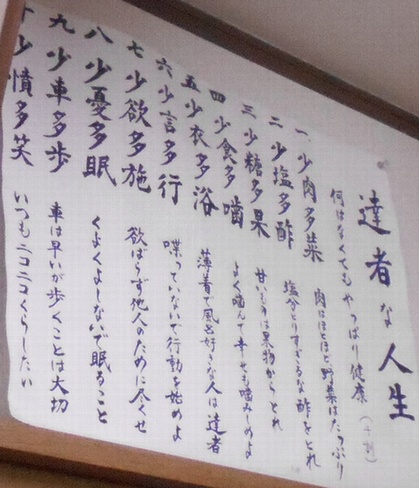 達者な人生
何はなくてもやっぱり健康（十訓）
一 少肉多菜
肉はほどほど野菜はたっぷり
二 少塩多酢
塩分とりすぎるな酢をとれ
三 少糖多果
甘いものは果物からとれ
四 少食多噛
よく噛んで幸せも噛みしめよ
五 少衣多浴
薄着で風呂好きな人は達者
六 少言多行
喋っていないで行動を始めよ
七 少欲多施
欲ばらず他人のために尽くせ
八 少憂多眠
くよくよしないで眠ること
九 少車多歩
車は早いが歩くことは大切
十 少憤多笑
いつもニコニコくらしたい